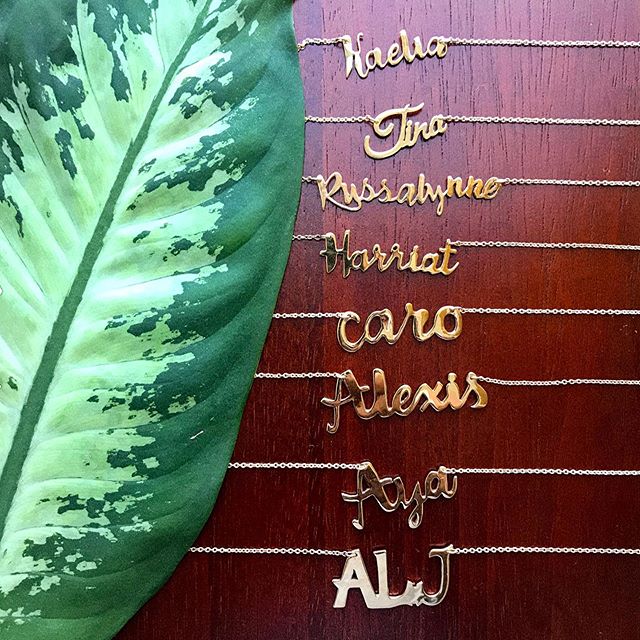 Kaelia
Tina
Russalynne
Harriat
caro
Alexis
Aya
ALJ